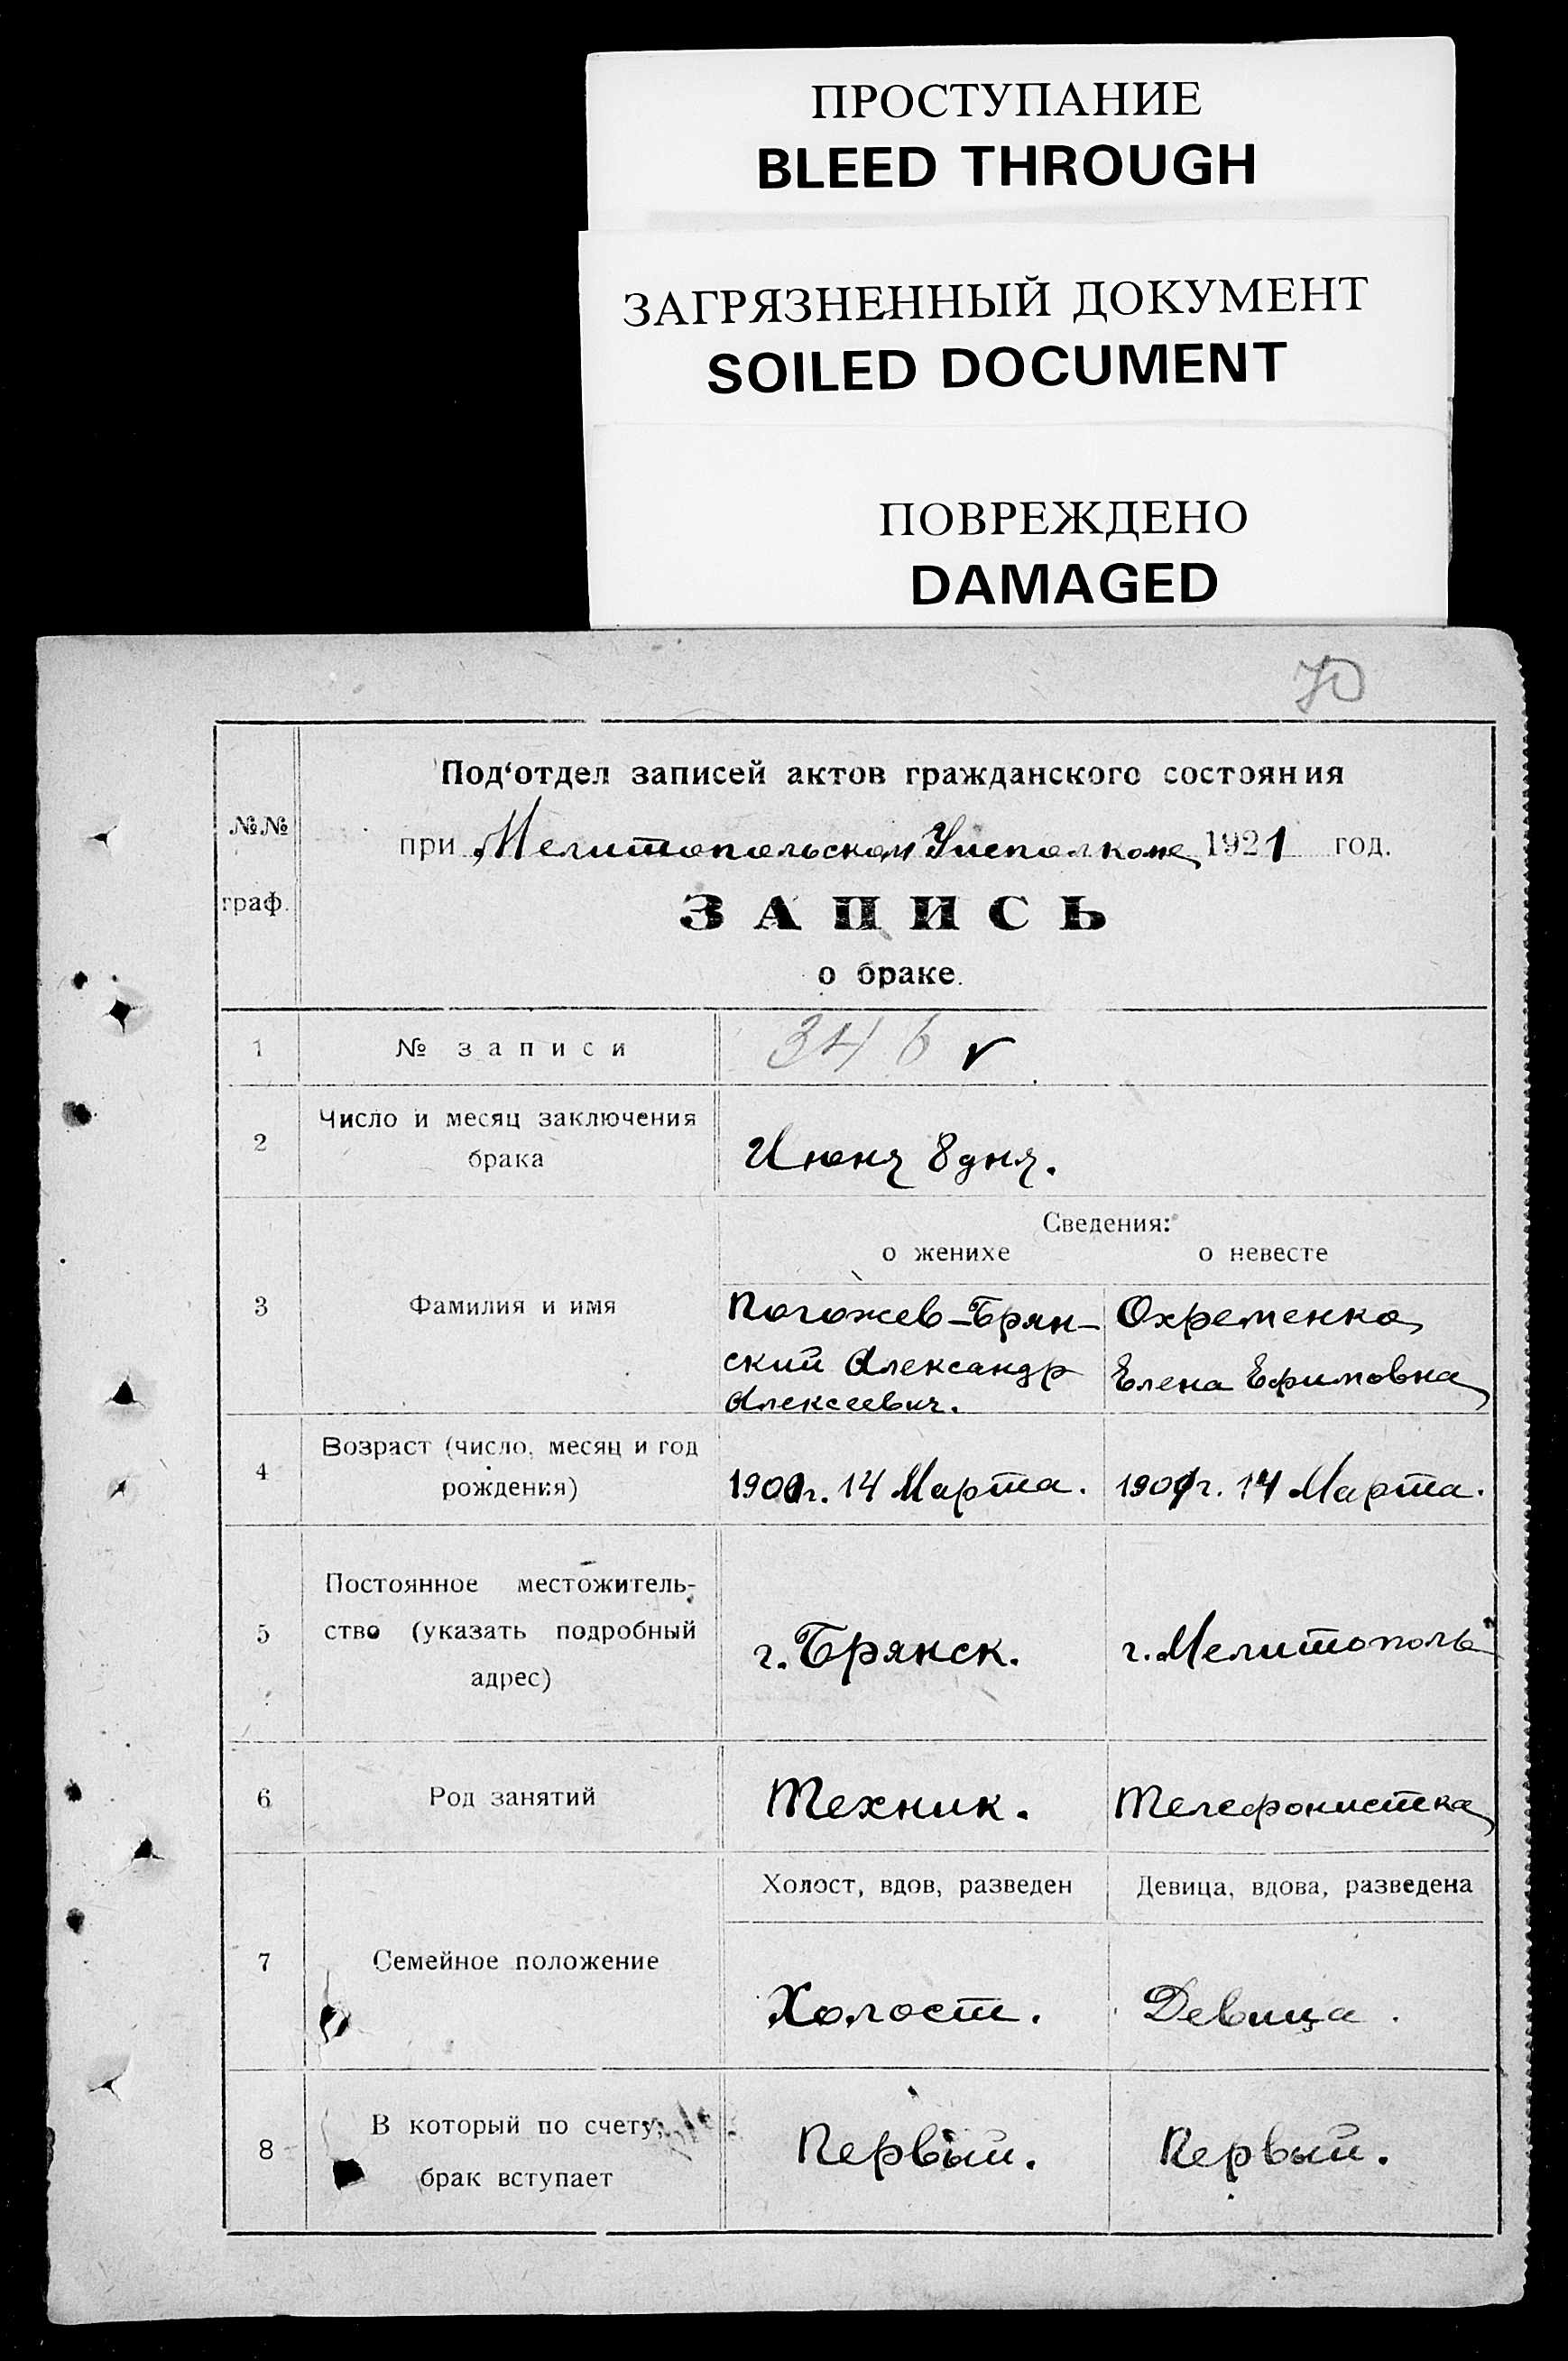 ПРОСТУПАНИЕ
BLEED THROUGH
ЗАГРЯЗНЕННЫЙ ДОКУМЕНТ
SOILED DOCUMENT
ПОВРЕЖДЕНО
DAMAGED
70
№№
граф.
Под‘отдел записей актов гражданского состояния
при Мелитопольском Уисполкоме 1921 год.
ЗАПИСЬ
о браке.
1 № записи 346 v
2 Число и месяц заключения
брака
Июня 8 дня.
Сведения:
о женихе о невесте
3 Фамилия и имя
Погожев-Брян- Охременко
ский Александр Елена Ефимовна
Алексеевич.
4 Возраст (число, месяц и год
рождения)
1900г. 14 Марта. 1901г. 14 Марта.
5 Постоянное местожитель-
ство (указать подробный
адрес)
г. Брянск. г. Мелитополь
6 Род занятий Техник. Телефонистка
Холост, вдов, разведен Девица, вдова, разведена
7 Семейное положение
Холост. Девица.
8 В который по счету
брак вступает
Первый. Первый.